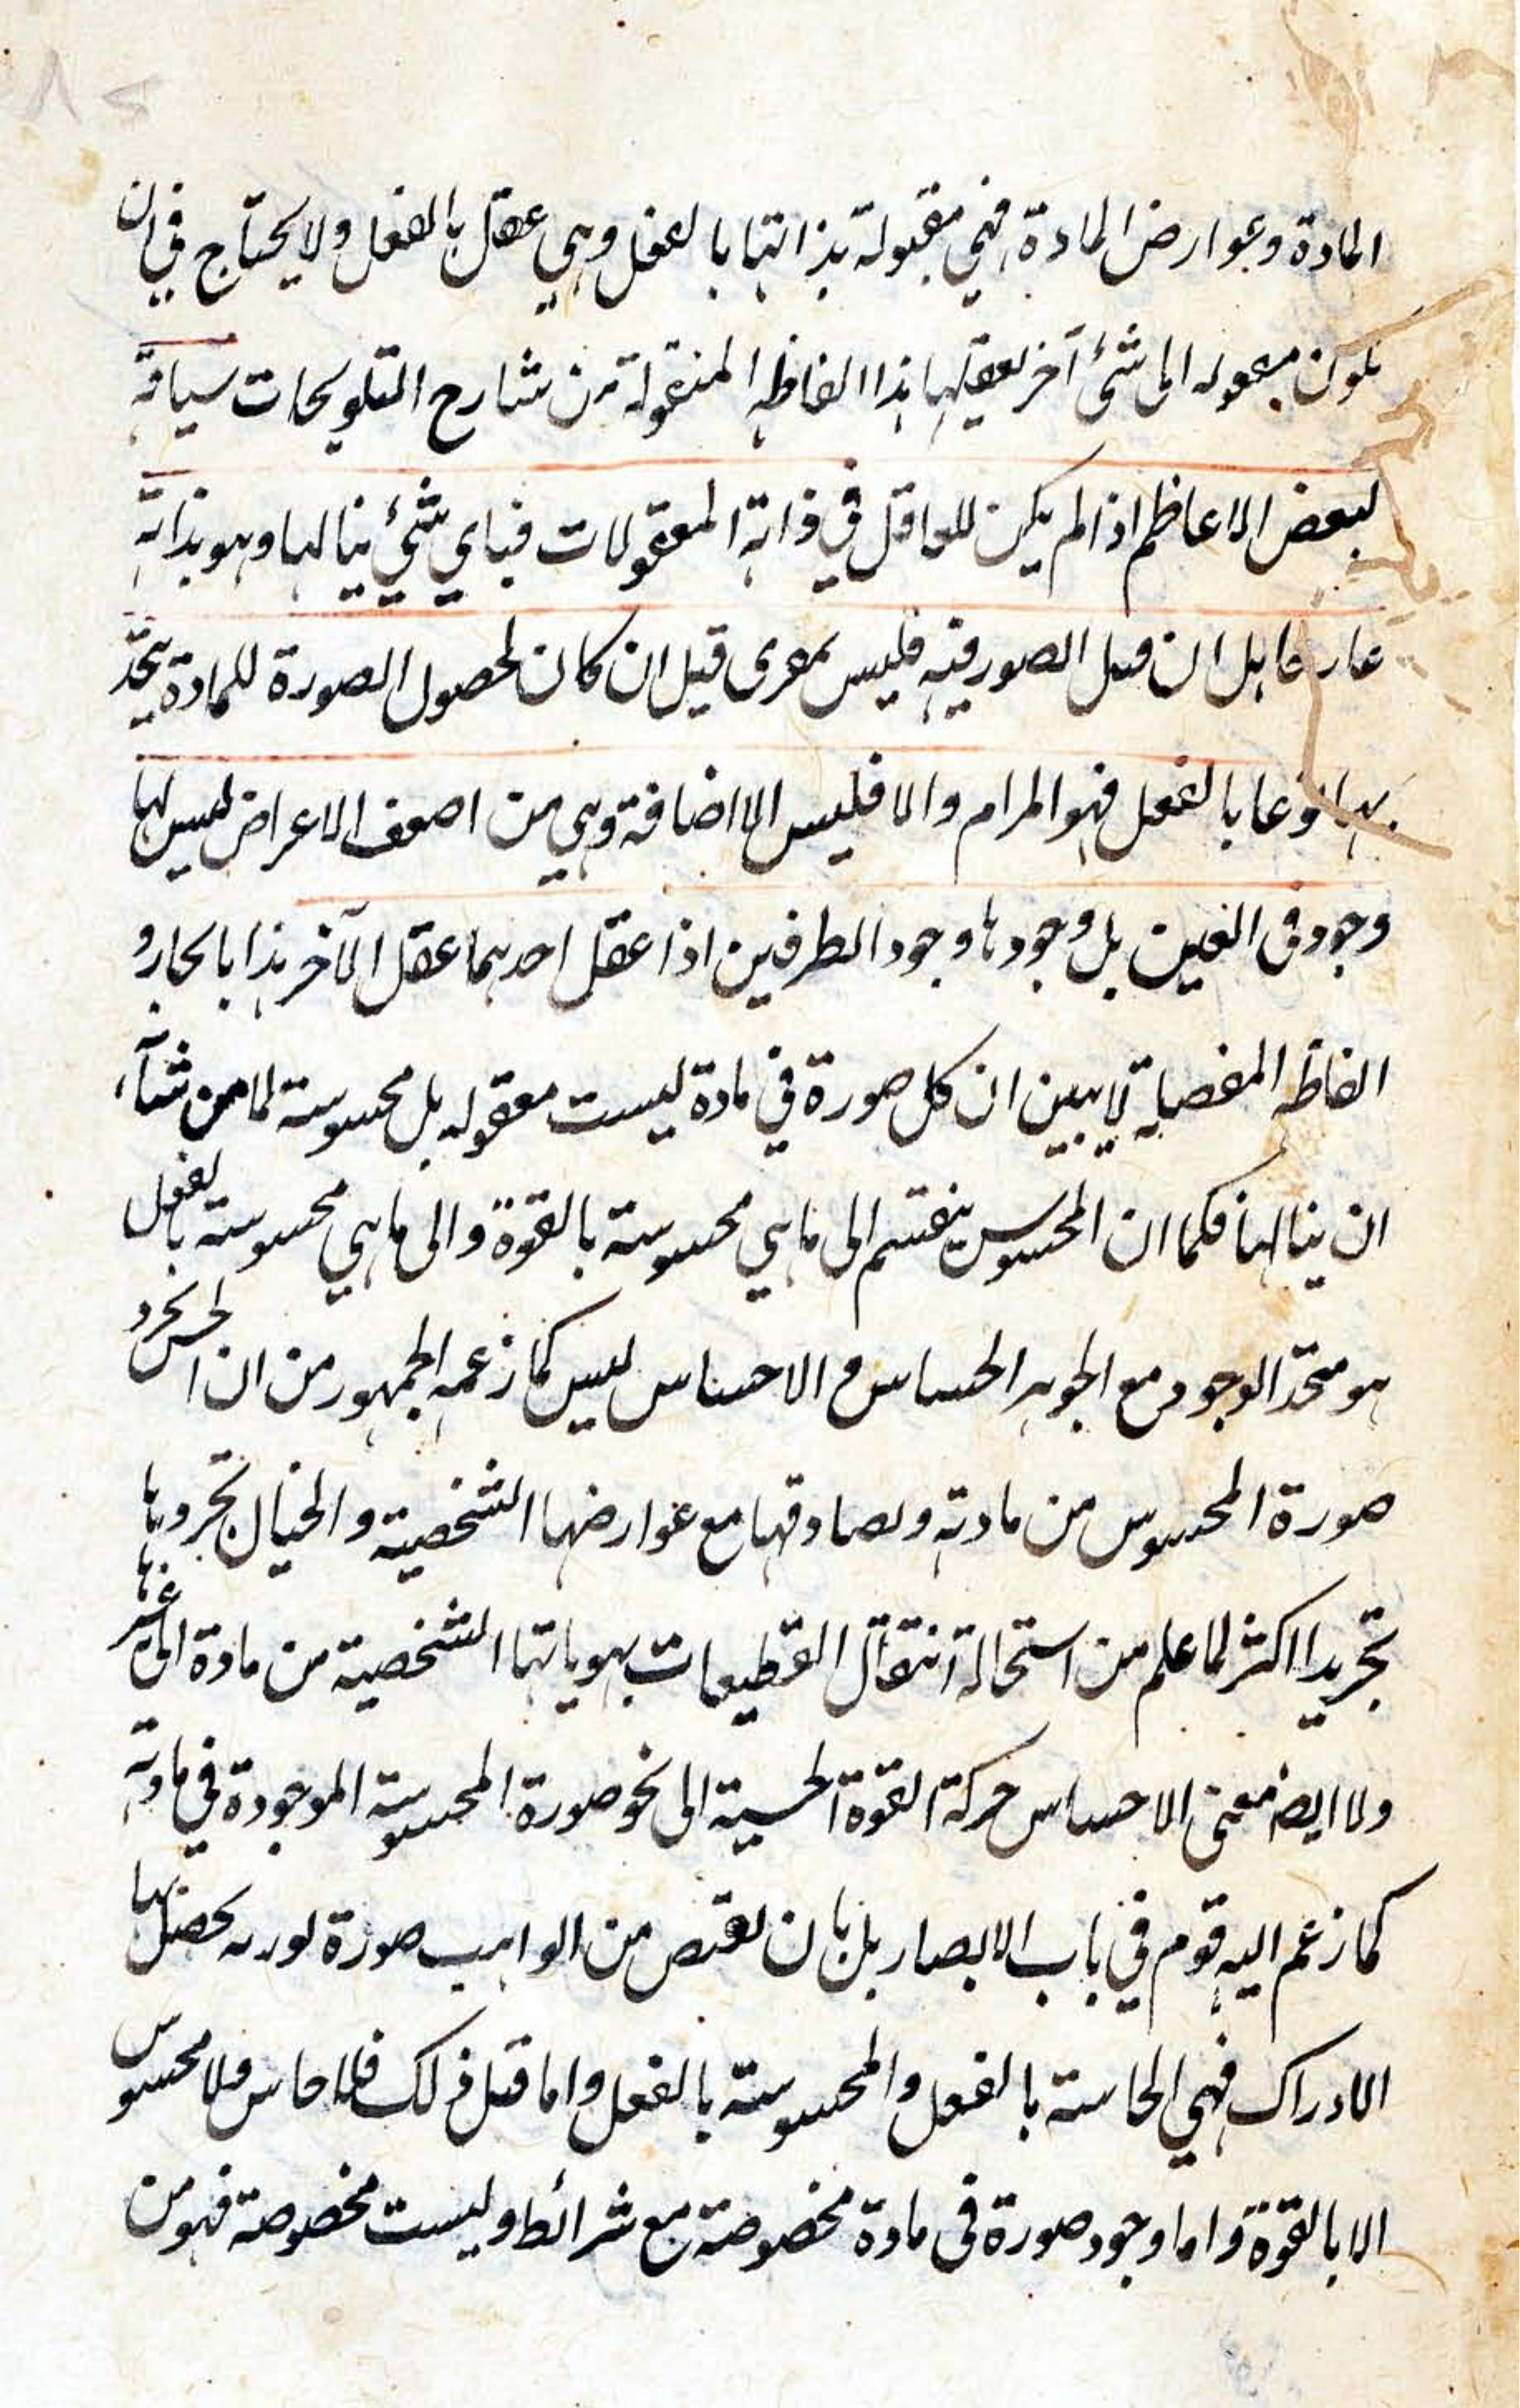 المادة وعوارض المادة فهي مقبولة بذاتها بالفعل وهي عقل بالفعل ولا يحتاج في ان
يكون معقوله الى شئ آخر يعقلها هذا الفاظه المنقولة من شارح التلويحات سياقة
لبعض الاعاظم اذا لم يكن للعاقل في ذاته المعقولات فباي شئ ينالها وهو بذاته
عار بل ان قيل الصور فيه فليس بمعرى قيل ان كان لحصول الصورة للمادة يتحد
بها نوعا بالفعل فهو المرام والا فليس الا اضافة وهي من اضعف الاعراض ليس لها
وجود في العين بل وجودها وجود الطرفين اذا عقل احدهما عقل الآخر هذا بالجار و
الفاظه ان كل صورة في مادة ليست معقوله بل محسوسة لما من شآء
ان ينالها فكما ان المحسوس ينقسم الى ما هي محسوسة بالقوة والى ما هي محسوسة بالفعل
هو متحد الوجود مع الجوهر الحساس و الاحساس ليس كما زعمه الجمهور من ان الحس يجرد
صورة المحسوس من مادته ويصادقها مع عوارضها الشخصية والخيال تجردها
تجريدا اكثر لما علم من استحالة انتقال بهوياتها الشخصية من مادة الى غيرها
ولا ايض معنى الاحساس حركة القوة الحسية الى نحو صورة المحسوسة الموجودة في مادته
كما زعم اليه قوم في باب الابصار بل بان من الواهب صورة نوريه يحصل بها
الادراك فهي الحاسة بالفعل والمحسوسة بالفعل واما قبل ذلك فلا حاس ولا محسوس
الا بالقوة واما وجود صورة في مادة مخصوصة مع شرائط وليست مخصوصة فهو من